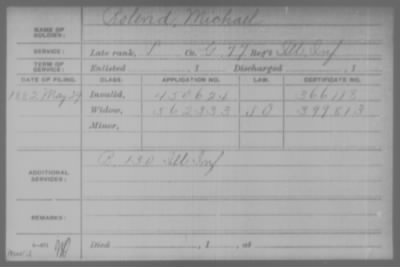 NAME OF SOLDIER: Rolend, Michael
SERVICE: Late rank, P Co. G, 77 Reg't Ill. Inf
TERM OF SERVICE: Enlisted , 1 Discharged , 1
DATE OF FILING. CLASS. APPLICATION NO. LAW. CERTIFICATE NO.
1882 May 29 Invalid, 450624 366118
Widow, 562333 399813
Minor,
ADDITIONAL SERVICES: 130 Ill. Inf
REMARKS:
Died , 1 , at